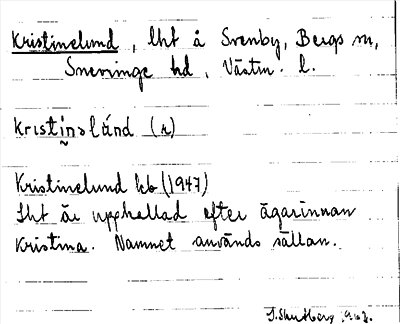 Kristinelund, lht å Svenby, Bergs sn,
Snevringe hd, Västm. l.
krıstínslúnd (r)
Kristinelund kb (1947)
Lht är uppkallad efter ägarinnan
Kristina. Namnet används sällan.